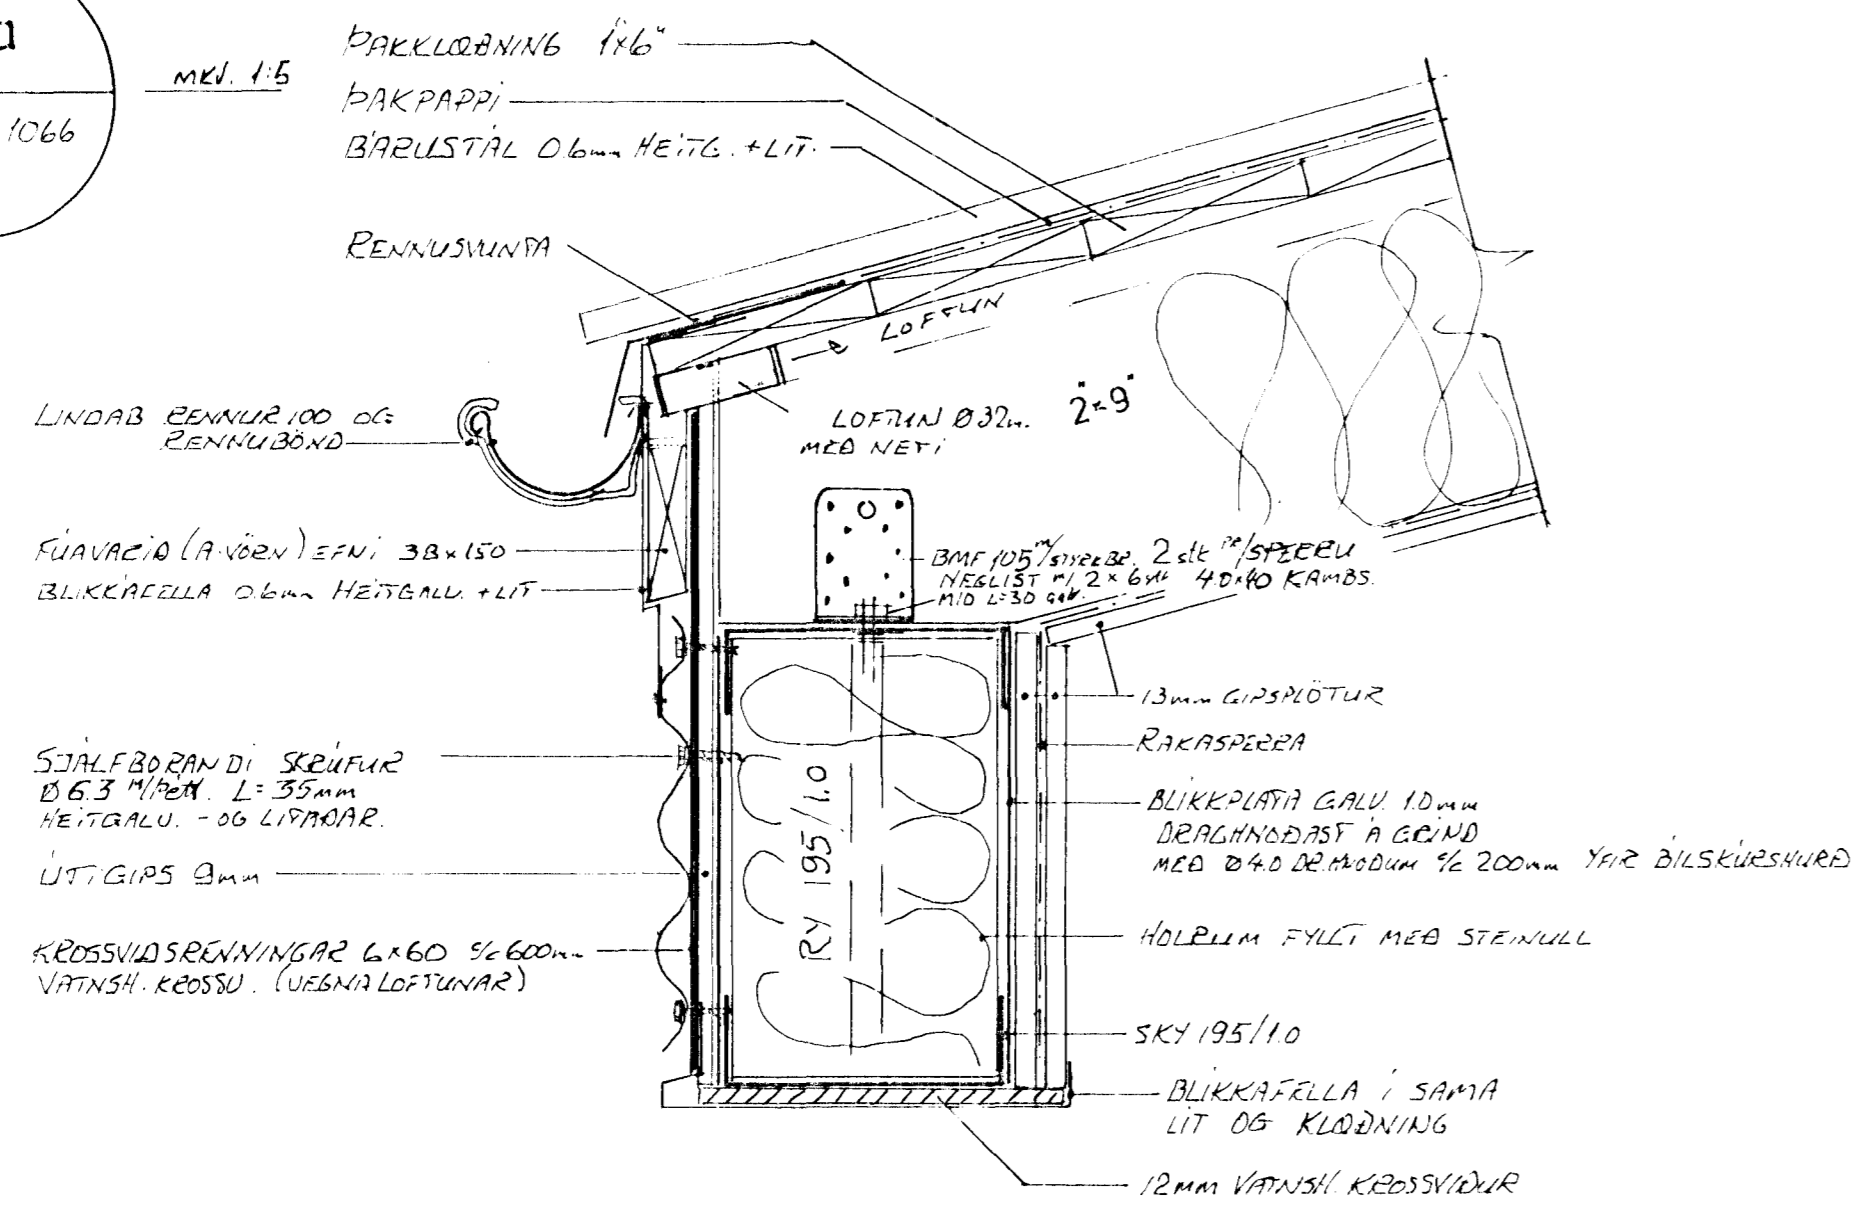 1066
MKV. 1:5
ÞAKKLÆÐNING 1x6"
ÞAKPAPPI
BÁRUSTÁL 0.6mm HEITG. + LIT.
RENNUSVUNTA
LOFTUN
LOFTUN Ø32m.
MEÐ NETI
2"x9"
LINDAB RENNUR 100 OG
RENNUBÖND
FÚAVARIÐ (A-VÖRN) EFNI 38x150
BLIKKÁFELLA 0.6mm HEITGALV. + LIT
BMF 105 M/STYRKBR. 2 stk pr/SPERRU
NEGLIST m/ 2x6 stk 4.0x40 KAMBS.
MID L=30 galv.
SJÁLFBORANDI SKRÚFUR
Ø 6.3 M/Þétt. L= 35mm
HEITGALV. - OG LITAÐAR.
ÚTIGIPS 9mm
KROSSVIÐSRENNINGAR 6x60 c/c 600mm
VATNSH. KROSSV. (VEGNA LOFTUNAR)
RY 195/1.0
13mm GIPSPLÖTUR
RAKASPERRA
BLIKKPLATA GALV. 1.0mm
DRAGHNOÐAST Á GRIND
MEÐ Ø4.0 DR.HNOÐUM c/c 200mm YFIR BÍLSKÚRSHURÐ
HOLRÚM FYLLT MEÐ STEINULL
SKY 195/1.0
BLIKKÁFELLA Í SAMA
LIT OG KLÆÐNING
12mm VATNSH. KROSSVIÐUR